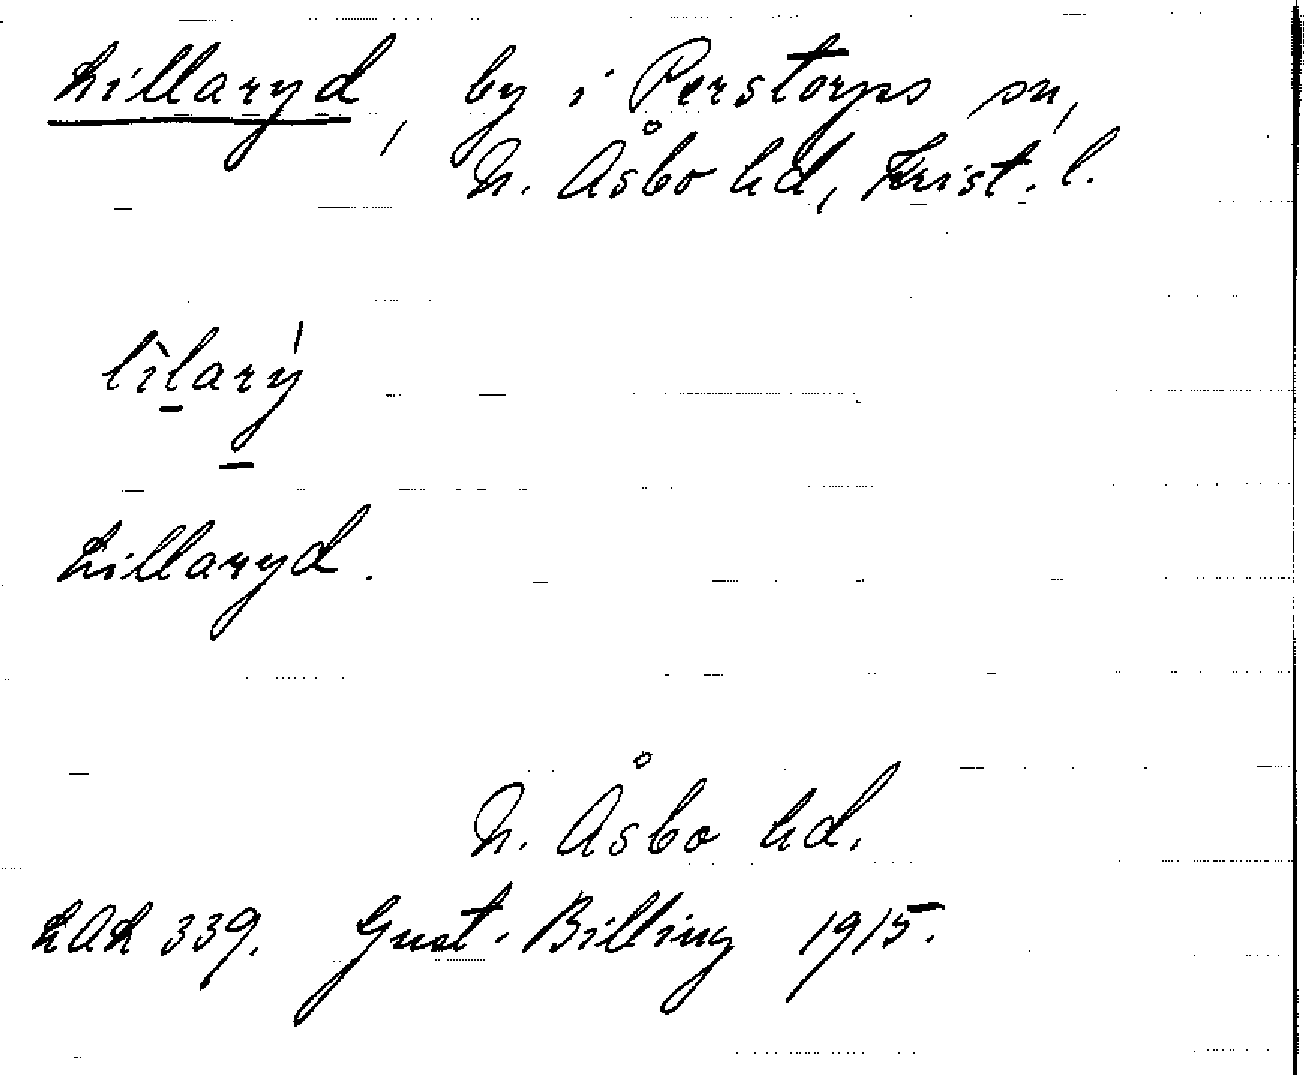 Lillaryd, by i Perstorps sn,
N. Åsbo hd, Krist. l.
lìlarý
Lillaryd.
N. Åsbo hd.
LAL 339. Gust. Billing 1915.